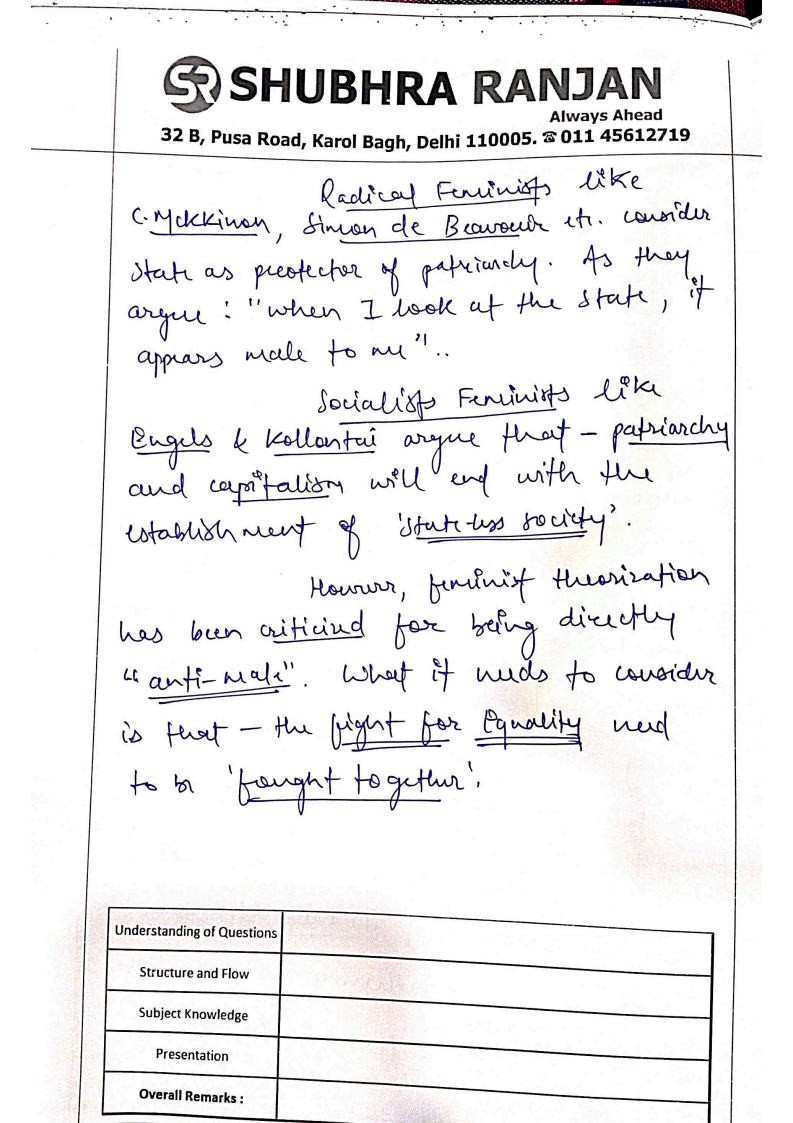 SR SHUBHRA RANJAN
Always Ahead
32 B, Pusa Road, Karol Bagh, Delhi 110005. ☎ 011 45612719
Radical Feminists like
C. Mckkinon, Simon de Beavouir etc. consider
state as preotector of patriarchy. As they
argue : "when I look at the state, it
appears male to me"..
Socialists Feminists like
Engels & Kollontai argue that – patriarchy
and capitalism will end with the
establishment of 'state-less society'.
However, feminist theorization
has been criticized for being directly
"anti-male". What it needs to consider
is that – the fight for Equality need
to be 'fought together'.
Understanding of Questions
Structure and Flow
Subject Knowledge
Presentation
Overall Remarks :